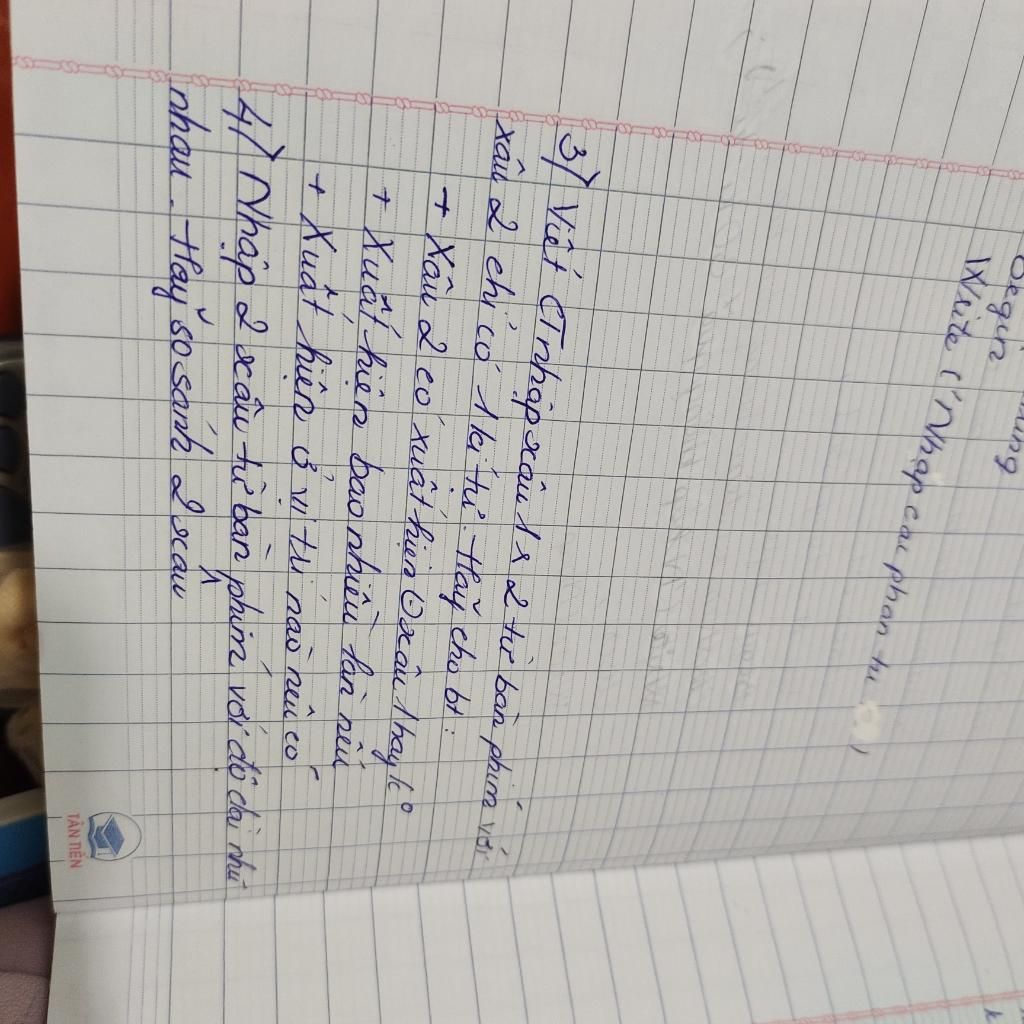 Begin
Write ('Nhap cac phan tu
3) Viết CT nhập xâu 1 & 2 từ bàn phím với
xâu 2 chỉ có 1 kí tự. Hãy cho bt:
+ Xâu 2 có xuất hiện ở xâu 1 hay ko
+ Xuất hiện bao nhiêu lần nếu
+ Xuất hiện ở vị trí nào nếu có
4) Nhập 2 xâu từ bàn phím với độ dài như
nhau. Hãy so sánh 2 xâu
TÂN TIẾN